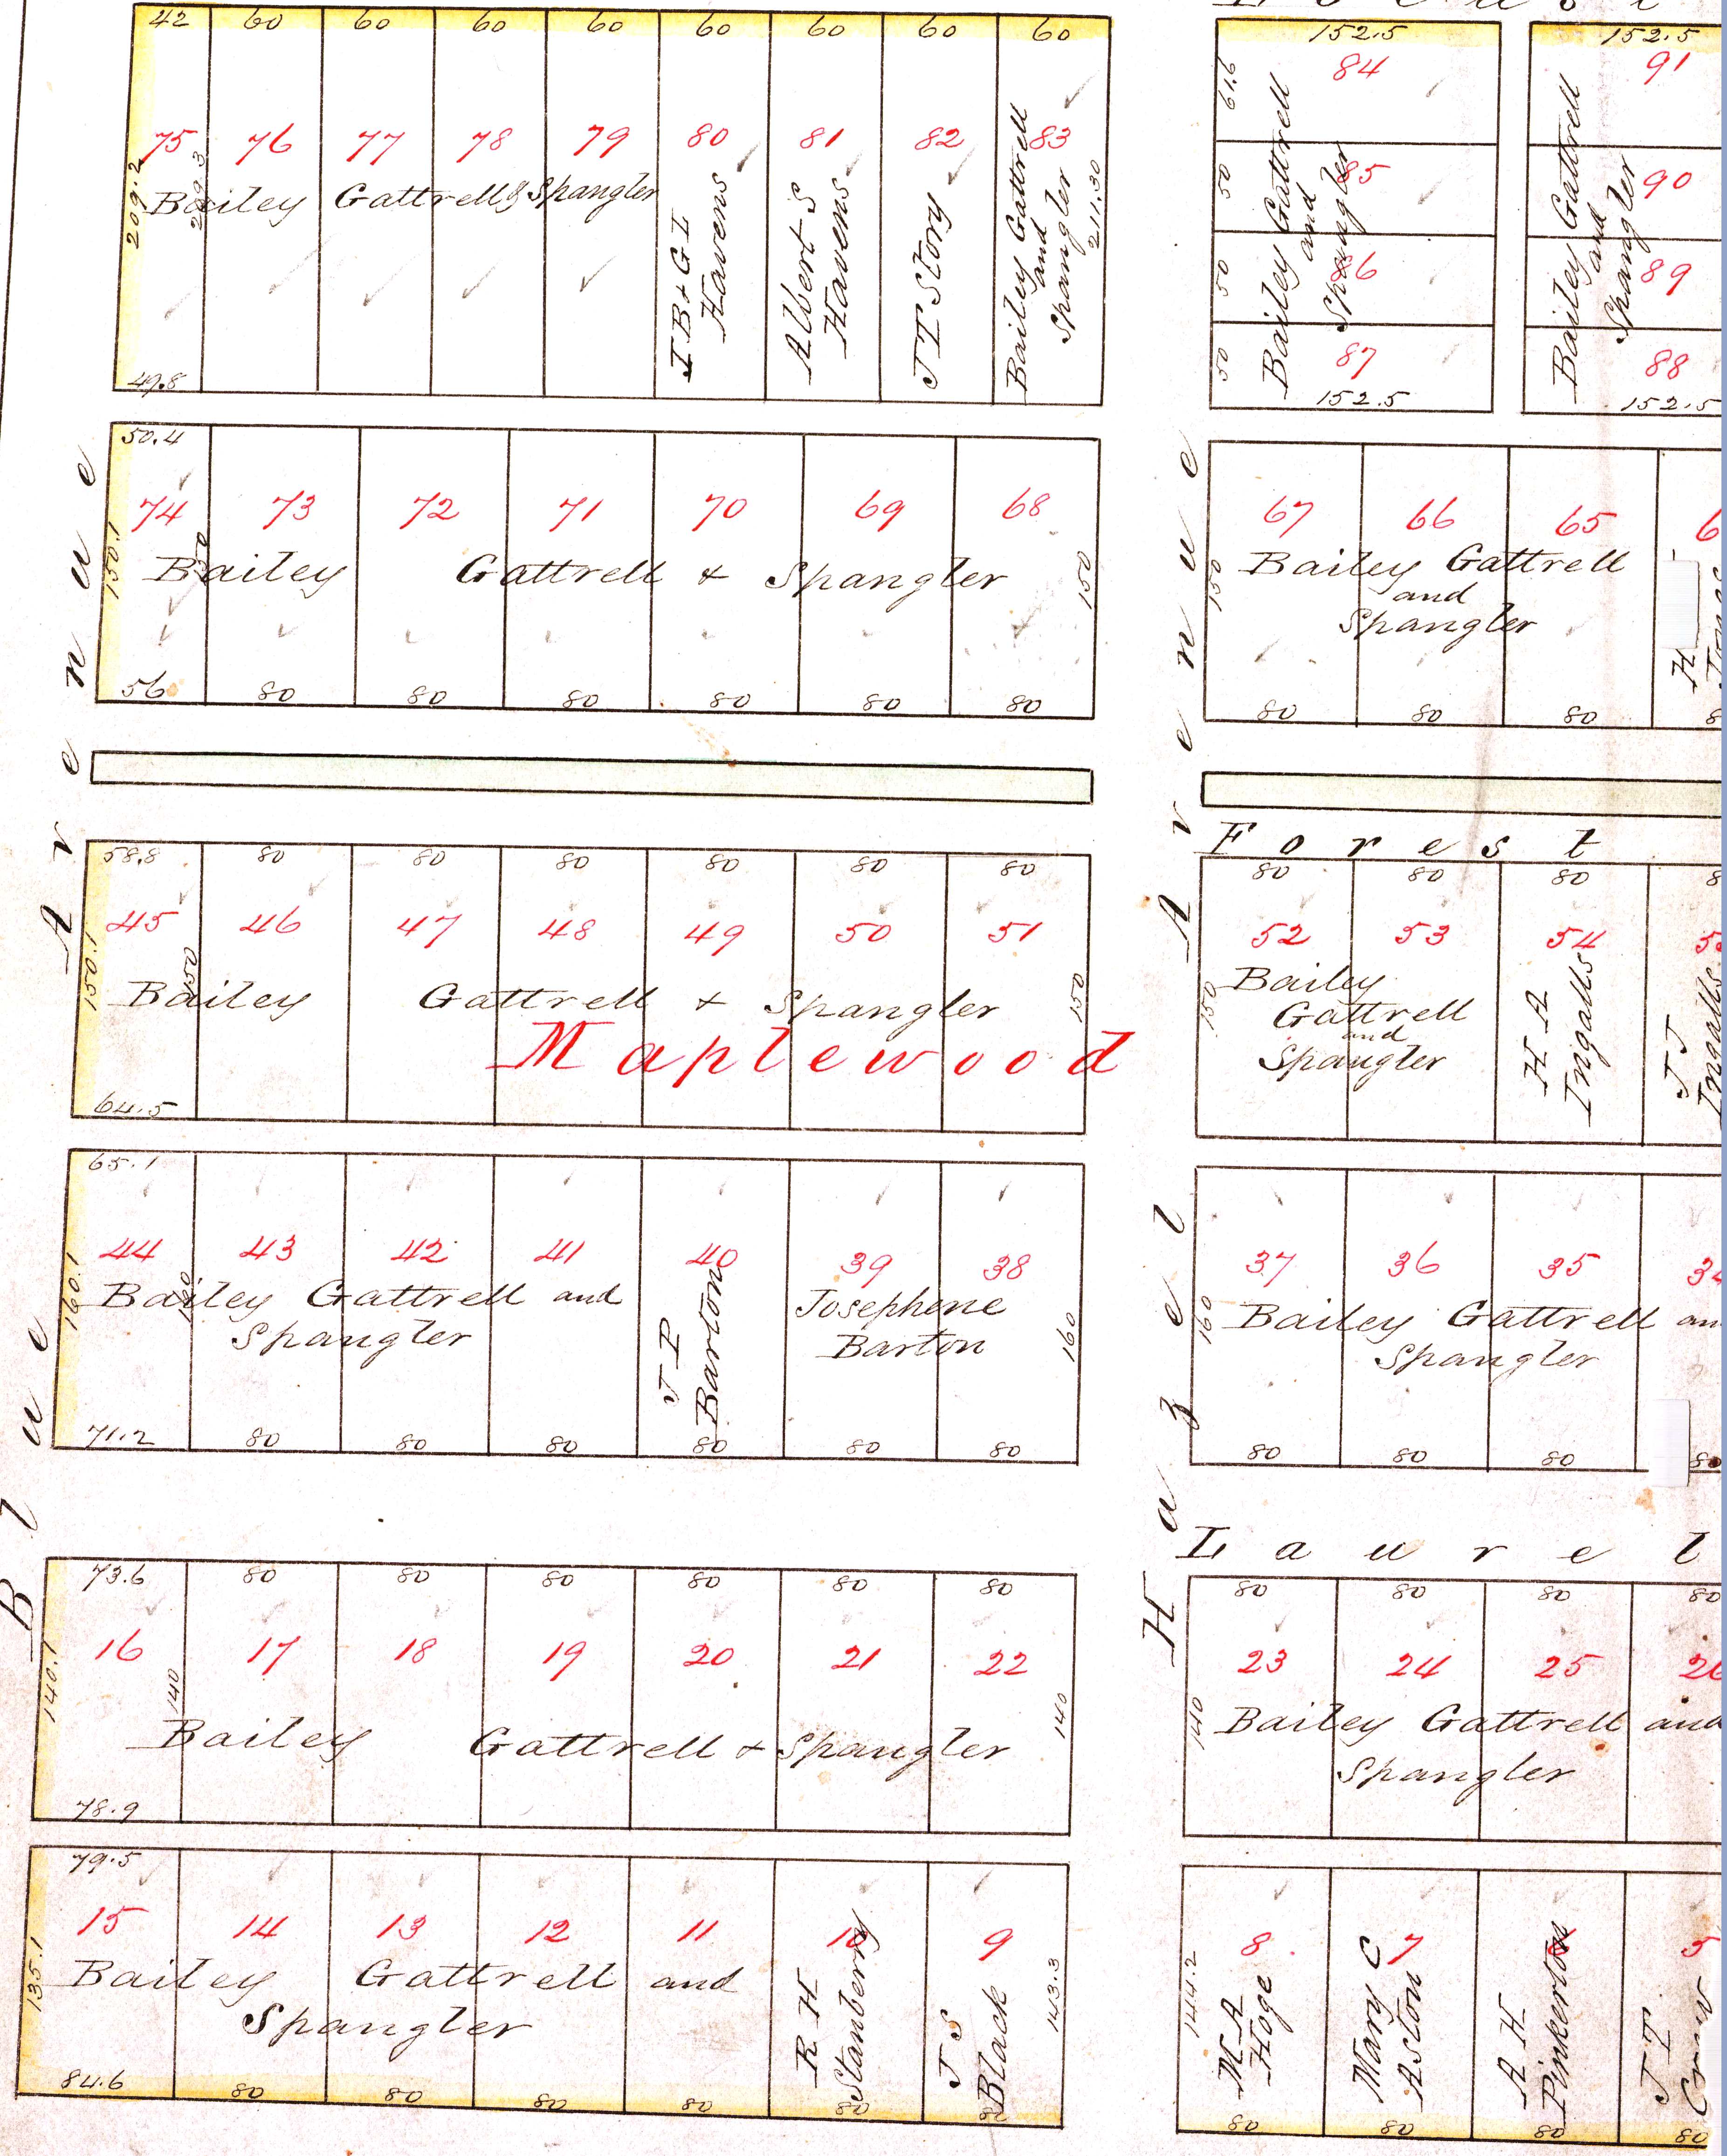 42 60 60 60 60 60 60 60 60
75 76 77 78 79 80 81 82 83
209.2
209.3
Bailey Gattrell & Spangler
J B & G I
Havens
Albert S
Havens
J T Story
Bailey Gattrell
and
Spangler
211.30
49.8
152.5
61.6
84
50
85
50
86
50
87
Bailey Gattrell
and
Spangler
152.5
152.5
91
90
89
88
Bailey Gattrell
and
Spangler
152.5
50.4
74 73 72 71 70 69 68
150.1
150
Bailey Gattrell & Spangler
150
56 80 80 80 80 80 80
67 66 65
150
Bailey Gattrell
and
Spangler
H
80 80 80
Forest
58.8 80 80 80 80 80 80
45 46 47 48 49 50 51
150.1
150
Bailey Gattrell & Spangler
150
Maplewood
64.5
80 80 80
52 53 54
150
Bailey
Gattrell
and
Spangler
H A
Ingalls
J J
Ingalls
65.1
44 43 42 41 40 39 38
160.1
160
Bailey Gattrell and
Spangler
J P
Barton
Josephine
Barton
160
71.2 80 80 80 80 80 80
37 36 35
160
Bailey Gattrell an
Spangler
80 80 80 80
Laurel
73.6 80 80 80 80 80 80
16 17 18 19 20 21 22
140.1
140
Bailey Gattrell & Spangler
140
78.9
80 80 80 80
23 24 25 26
140
Bailey Gattrell and
Spangler
79.5
15 14 13 12 11 10 9
135.1
Bailey Gattrell and
Spangler
R H
Stanberry
J S
Black
143.3
84.6 80 80 80 80 80 80
8 7 6 5
144.2
M A
Hoge
Mary C
Aston
A H
Pinkerton
J T
Crew
80 80 80 80
Blue Avenue
Hazel Avenue